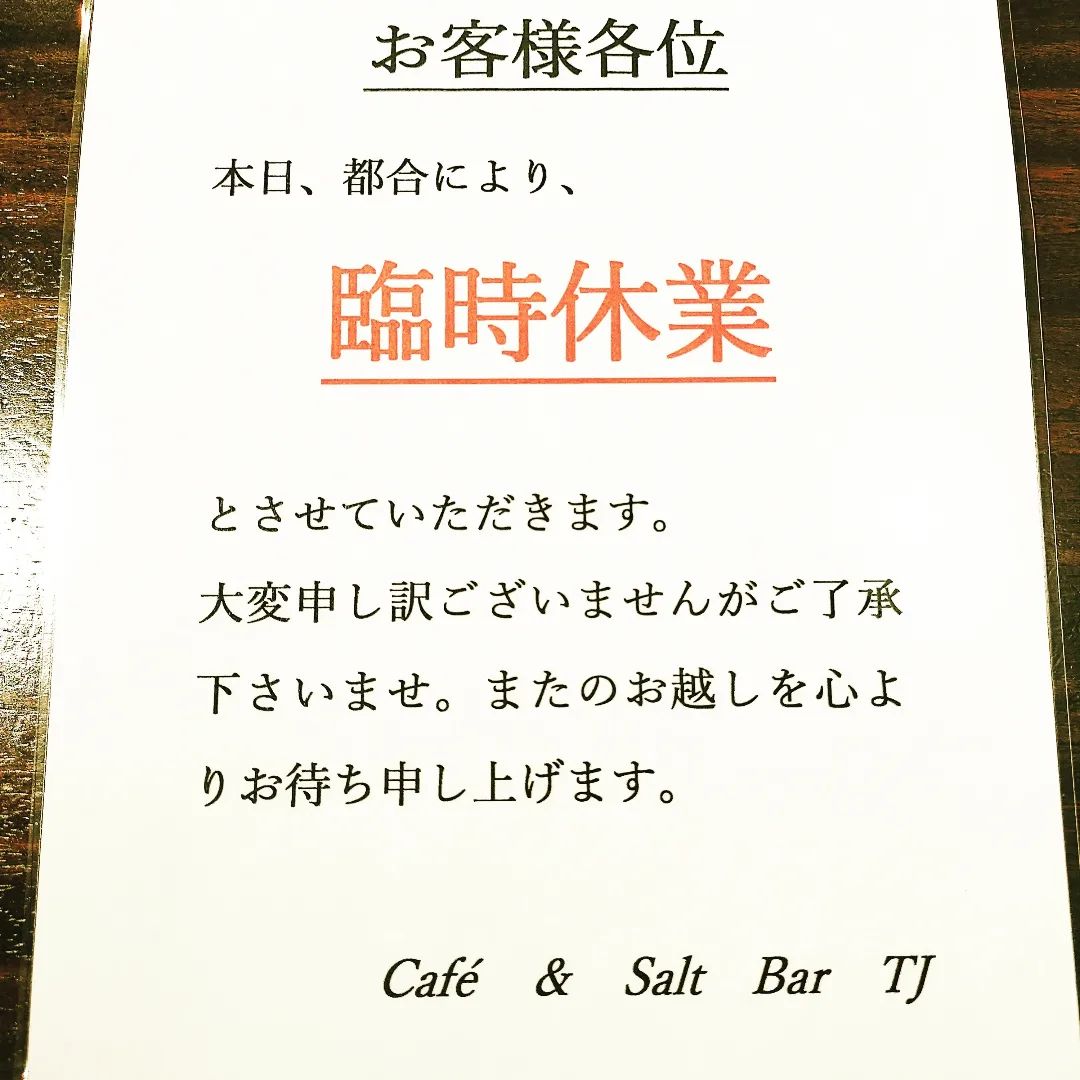 お客様各位
本日、都合により、
臨時休業
とさせていただきます。
大変申し訳ございませんがご了承
下さいませ。またのお越しを心よ
りお待ち申し上げます。
Café & Salt Bar TJ